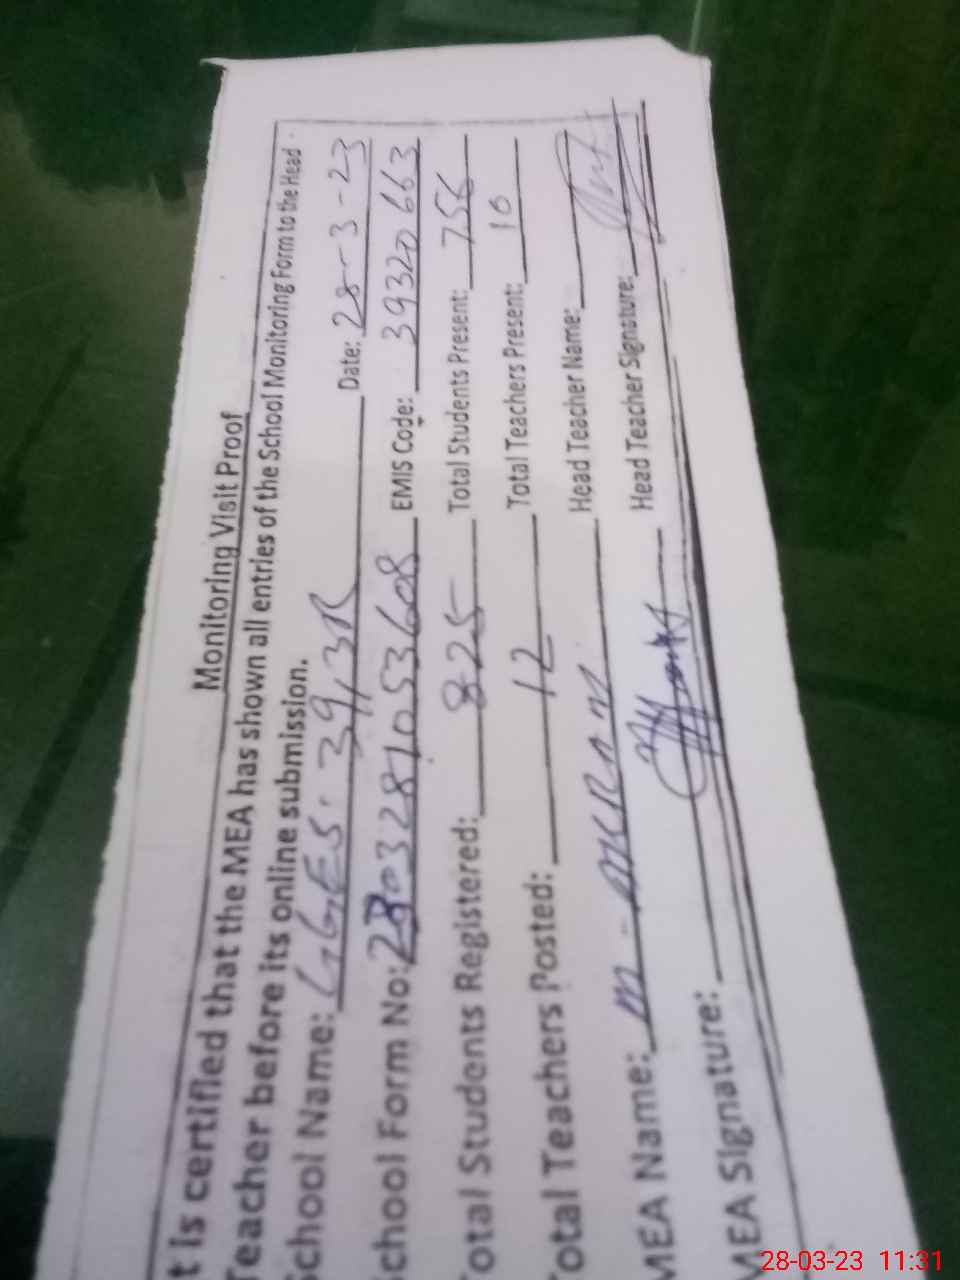 Monitoring Visit Proof
t is certified that the MEA has shown all entries of the School Monitoring Form to the Head
Teacher before its online submission.
School Name: GGES. 39/3R Date: 28-3-23
School Form No: 03281053608 EMIS Code: 39320663
Total Students Registered: 825 Total Students Present: 756
Total Teachers Posted: 12 Total Teachers Present: 10
MEA Name: M- AKRAM Head Teacher Name:
MEA Signature: Head Teacher Signature:
28-03-23 11:31